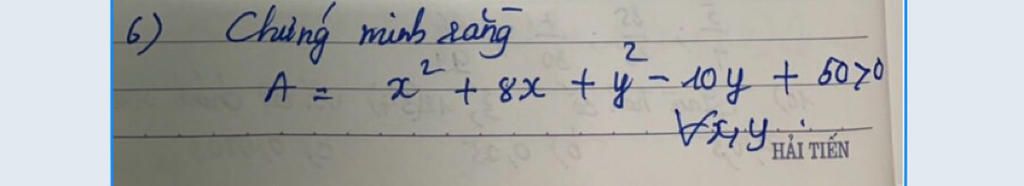 6) Chứng minh rằng
A = x² + 8x + y² - 10y + 50 > 0
∀x, y.
HẢI TIẾN